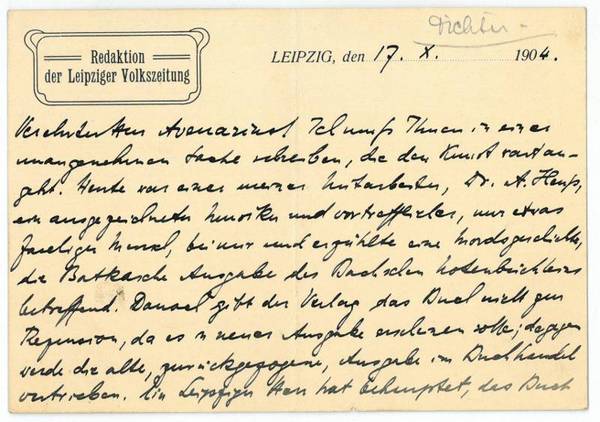 Dichter –
Redaktion
der Leipziger Volkszeitung
LEIPZIG, den 17. X. 1904.
Verehrter Herr Avenarius! Ich muß Ihnen in einer
unangenehmen Sache schreiben, die den Kunstwart an-
geht. Heute war einer meiner Mitarbeiter, Dr. A. Heuß,
ein ausgezeichneter Musiker und vortrefflicher, nur etwas
faseliger Mensch, bei mir und erzählte eine Mordsgeschichte,
die Batkasche Ausgabe des Bachschen Notenbüchleins
betreffend. Danach gibt der Verlag das Buch nicht zur
Rezension, da es in neuer Ausgabe erscheinen solle; dagegen
werde die alte, zurückgezogene, Ausgabe im Buchhandel
vertrieben. Ein Leipziger Herr hat behauptet, das Buch